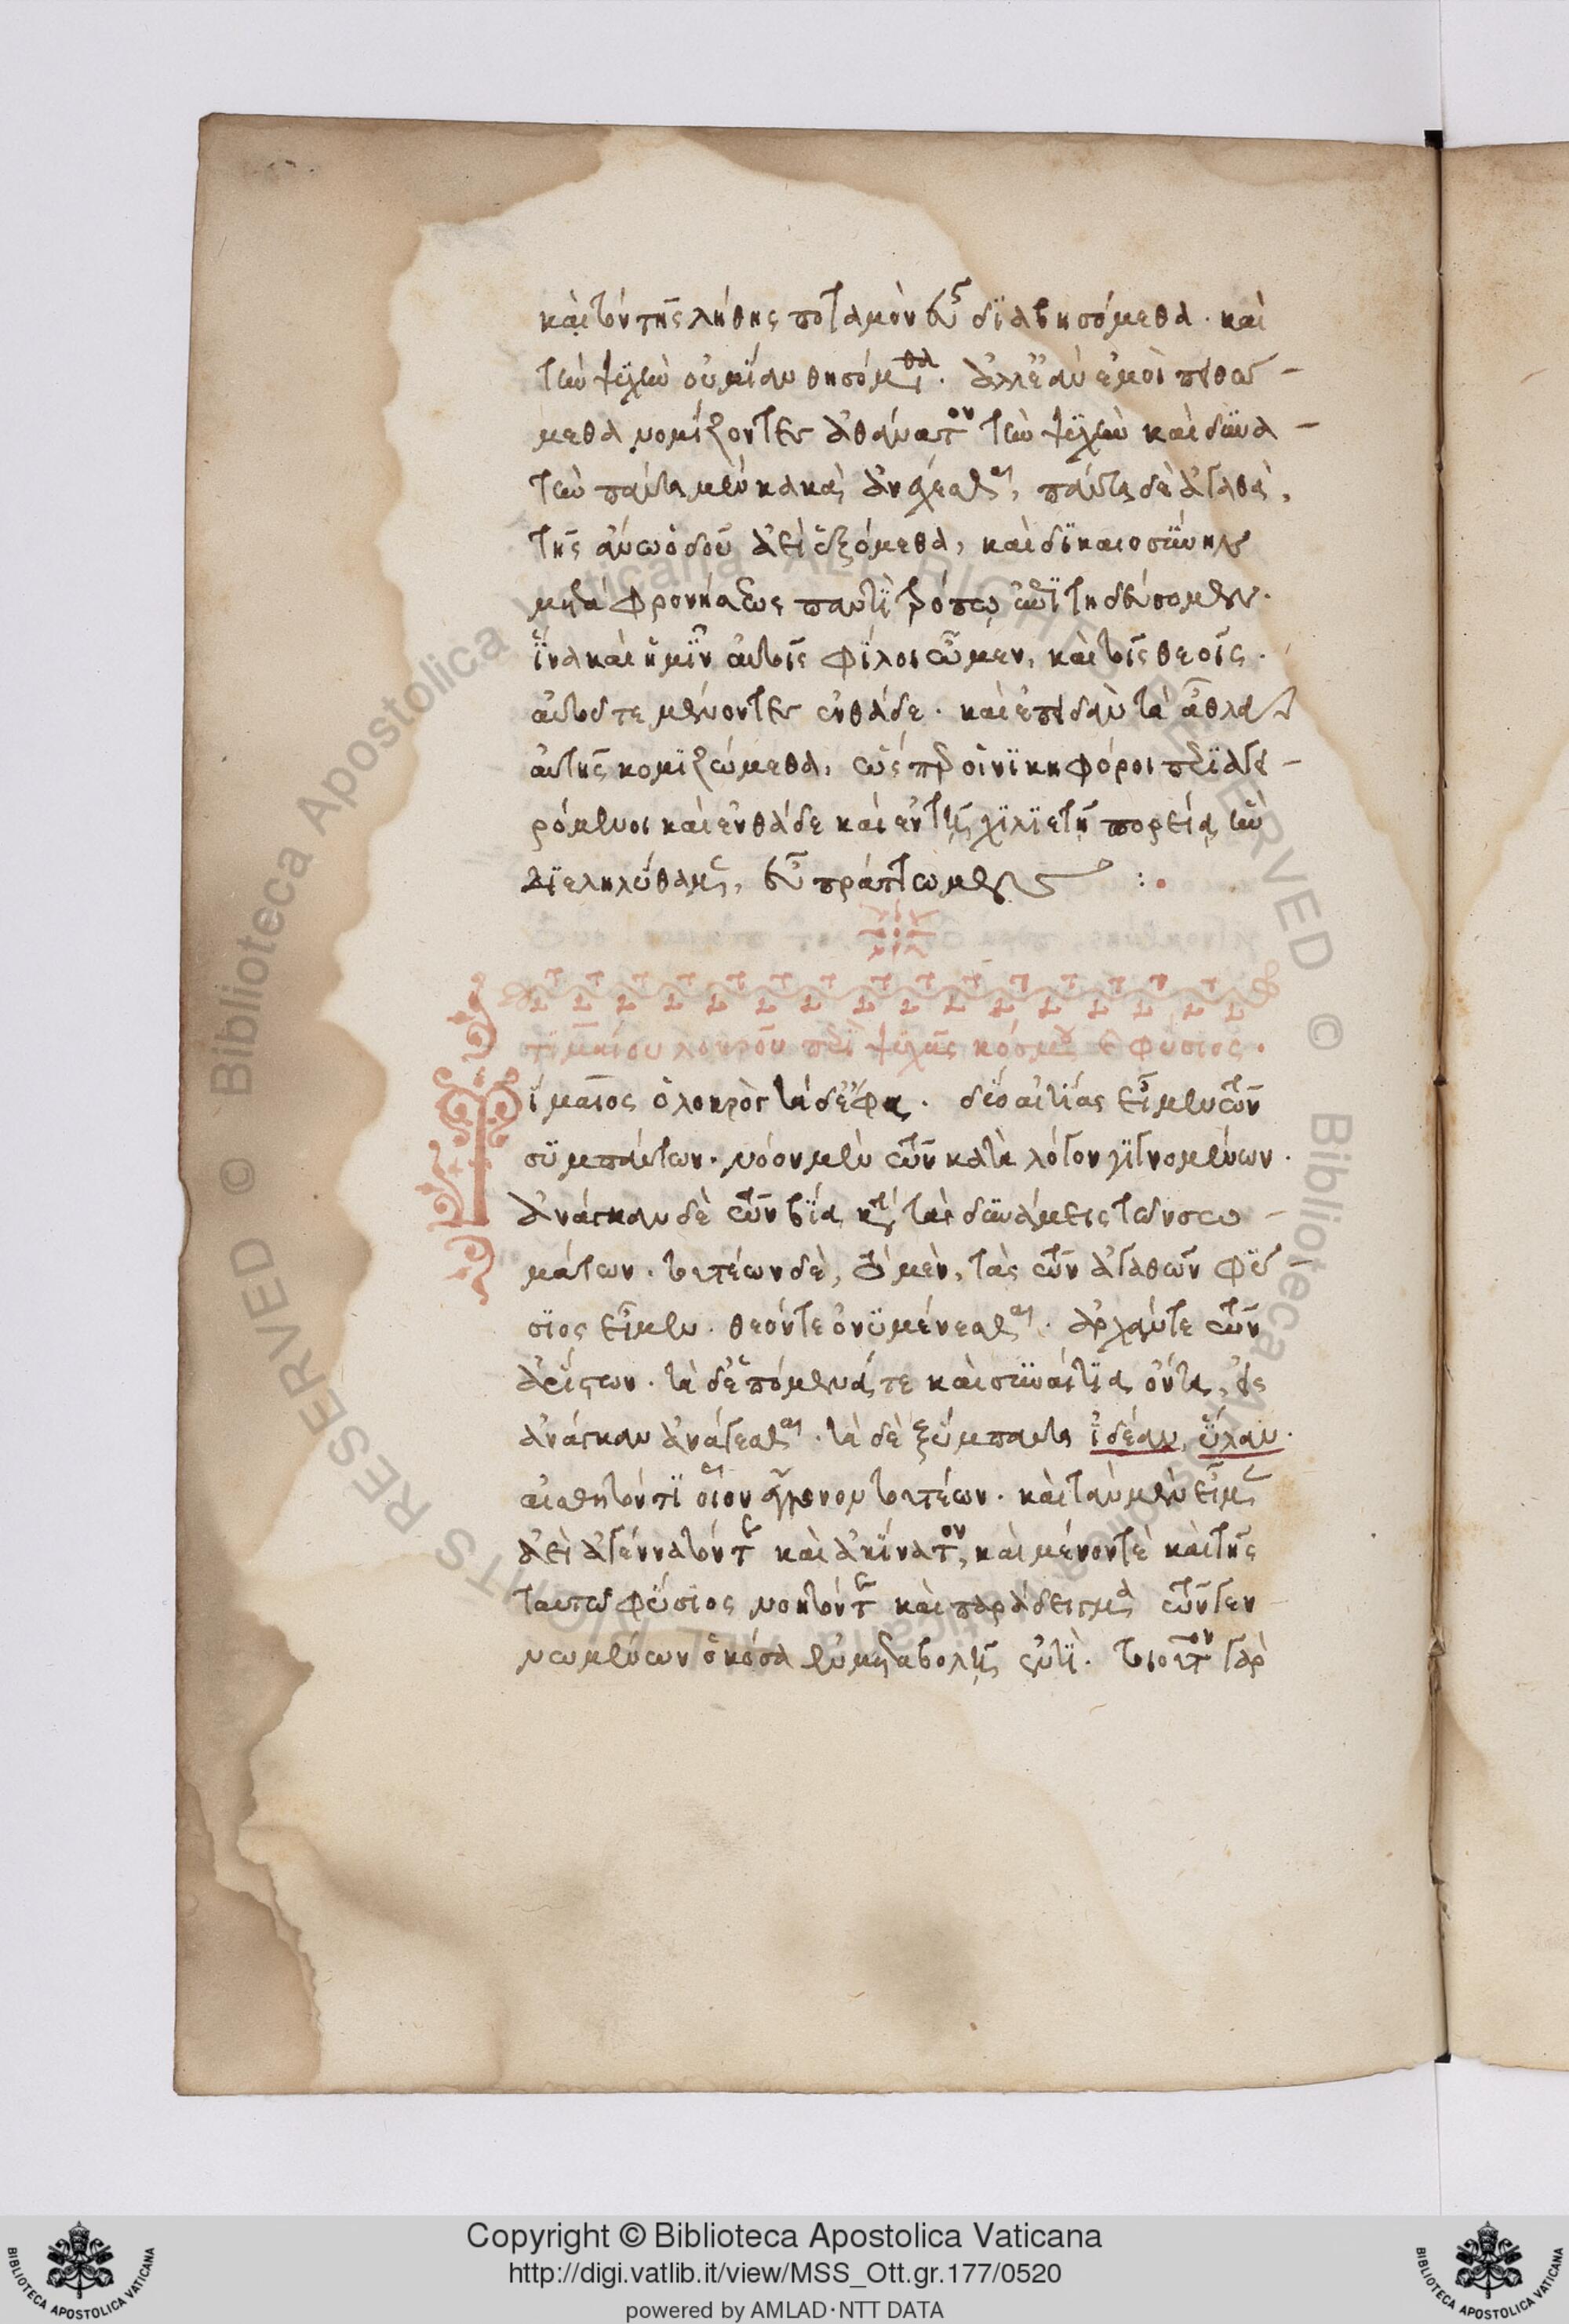 καὶ τὸν τῆς λήθης ποταμὸν εὖ διαβησόμεθα. καὶ
τὴν ψυχὴν οὐ μιανθησόμεθα. ἀλλ' ἐὰν ἐμοὶ πειθώ-
μεθα νομίζοντες ἀθάνατον τὴν ψυχὴν καὶ δυνα-
τὴν πάντα μὲν κακὰ ἀνέχεσθαι, πάντα δὲ ἀγαθὰ,
τῆς ἄνω ὁδοῦ ἀεὶ ἑξόμεθα, καὶ δικαιοσύνην
μετὰ φρονήσεως παντὶ τρόπῳ ἐπιτηδεύσομεν.
ἵνα καὶ ἡμῖν αὐτοῖς φίλοι ὦμεν, καὶ τοῖς θεοῖς.
αὐτοῦ τε μένοντες ἐνθάδε. καὶ ἐπειδὰν τὰ ἆθλα
αὐτῆς κομιζώμεθα, ὥσπερ οἱ νικηφόροι περιαγει-
ρόμενοι καὶ ἐνθάδε καὶ ἐν τῇ χιλιετῇ πορείᾳ ἣν
διεληλύθαμεν, εὖ πράττωμεν :.
τιμαίου λοκροῦ περὶ ψυχᾶς κόσμου καὶ φύσιος.
Τίμαιος ὁ λοκρὸς τάδε ἔφα. δύο αἰτίας εἶμεν τῶν
συμπάντων. νόον μὲν τῶν κατὰ λόγον γιγνομένων.
ἀνάγκαν δὲ τῶν βίᾳ κατὰ τὰς δυνάμεις τῶν σω-
μάτων. τουτέων δὲ, τὸν μὲν, τᾶς τῶν ἀγαθῶν φύ-
σιος εἶμεν. θεόν τε ὀνυμένεσθαι. ἀρχάν τε τῶν
ἀρίστων. τὰ δ' ἑπόμενά τε καὶ συναίτια ὄντα, εἰς
ἀνάγκαν ἀνάγεσθαι. τὰ δὲ ξύμπαντα ἰδέαν, ὕλαν.
αἰσθητόν τι οἷον ἔκγονον τουτέων. καὶ τὰν μὲν εἶμεν
ἀεὶ ἀγέννατόν τε καὶ ἀκίνατον, καὶ μένον τὲ καὶ τῆς
ταυτῶ φύσιος νοητόν τε καὶ παράδειγμα τῶν γεν
νωμένων ὁκόσα ἐν μεταβολῇ ἐντί. τοιοῦτον γὰρ
Copyright © Biblioteca Apostolica Vaticana
http://digi.vatlib.it/view/MSS_Ott.gr.177/0520
powered by AMLAD·NTT DATA